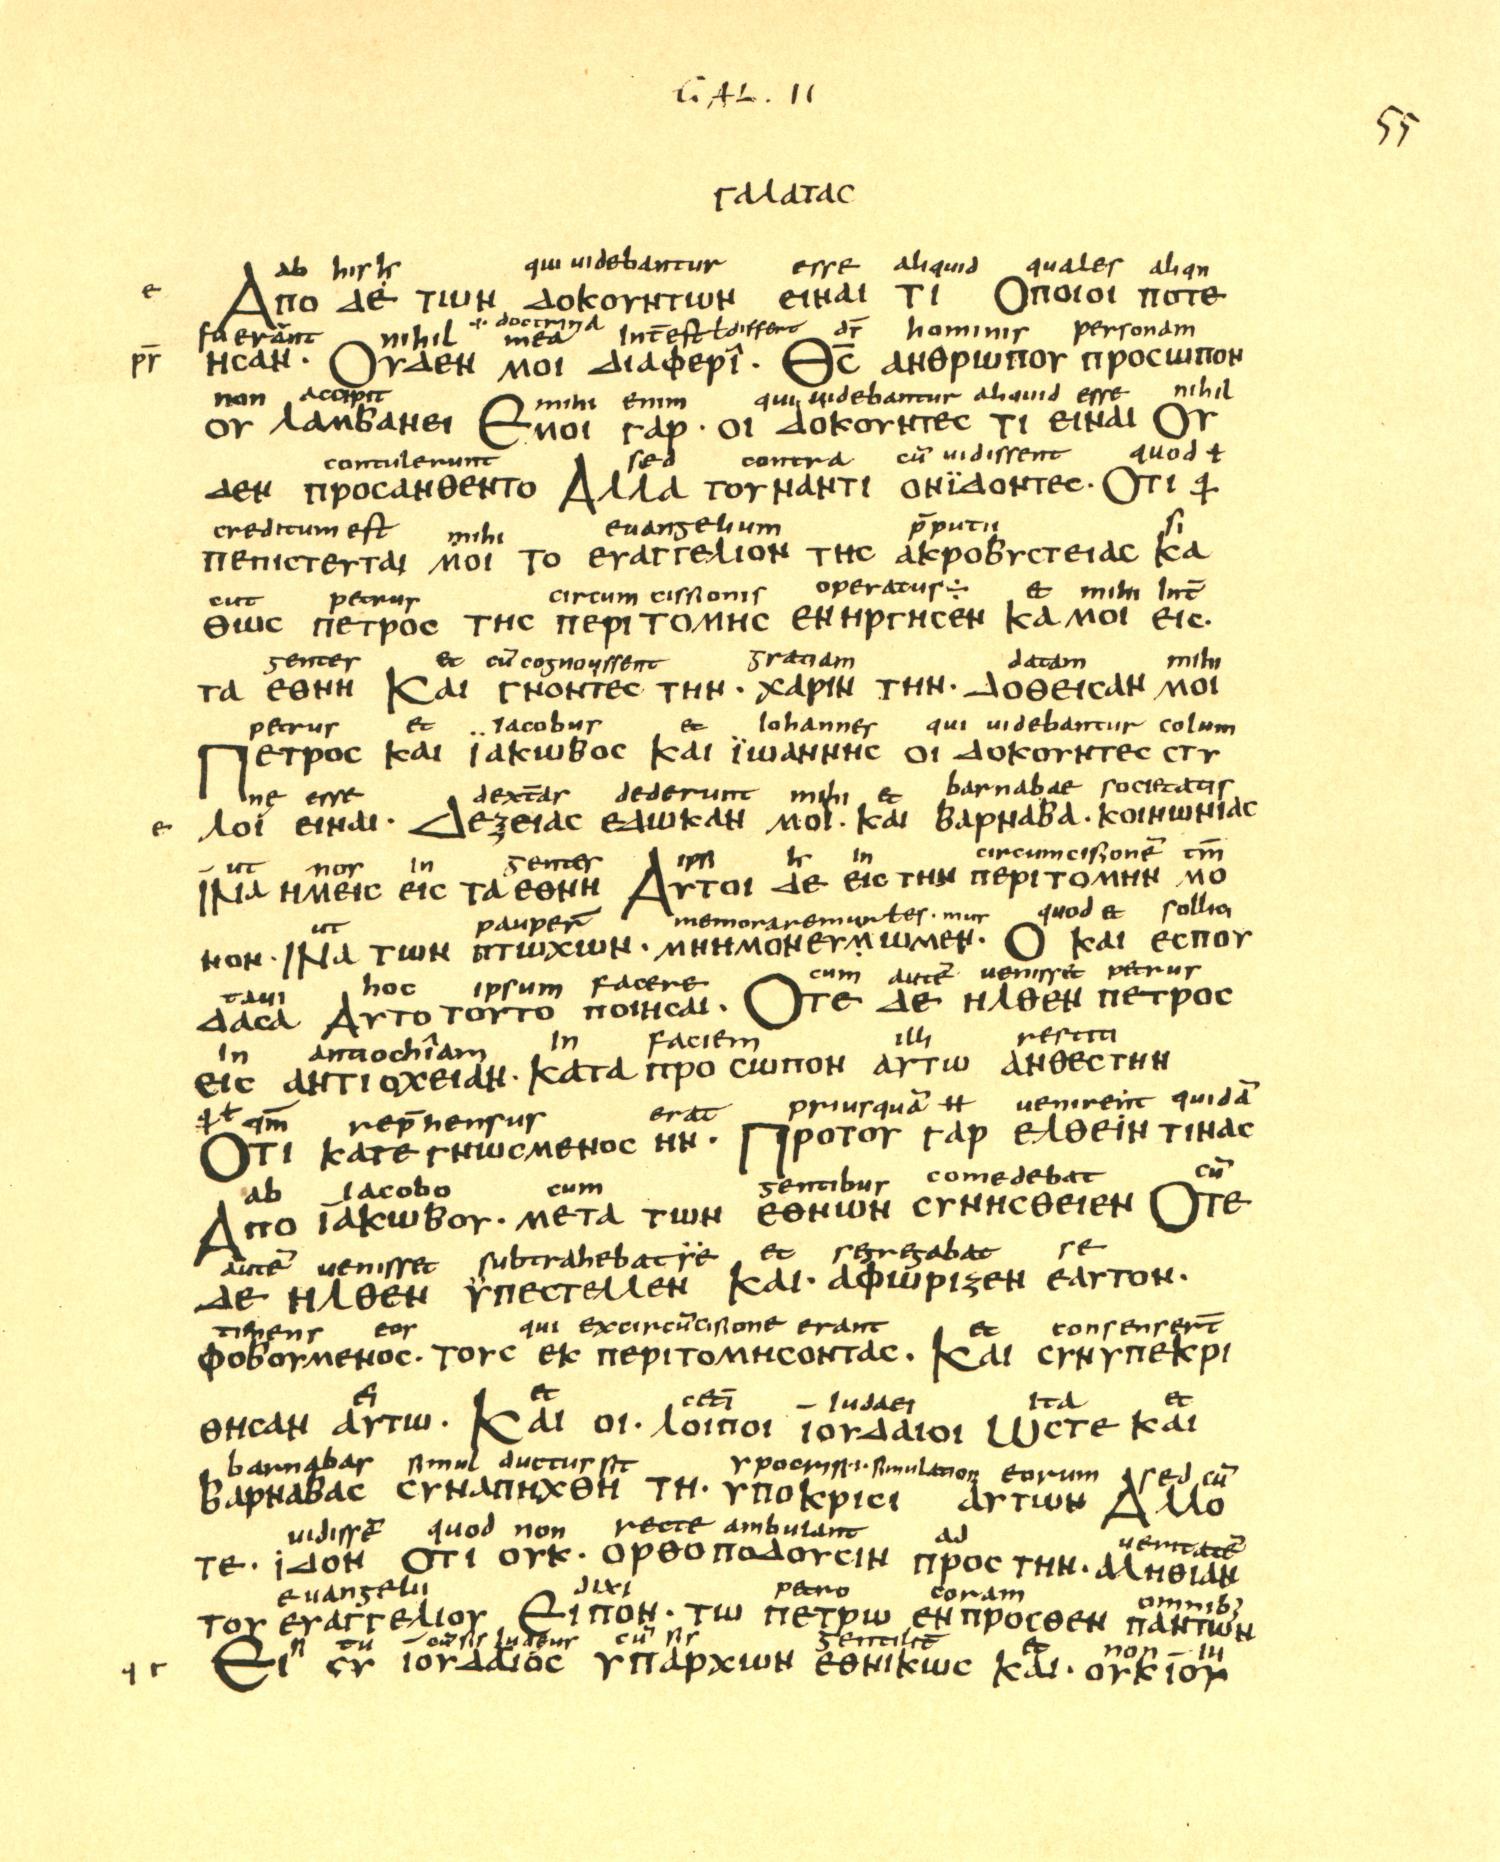 GAL. II
55
γαλατας
ab his qui uidebantur esse aliquid quales aliqn
e Απο δε των δοκουντων ειναι τι Οποιοι ποτε
fuerant nihil mea doctrina differt hominis personam
ησαν· Ουδεν μοι διαφερι· Θς̅ ανθρωπου προσωπον
non accipit mihi enim qui uidebantur aliquid esse nihil
ου λαμβανει Εμοι γαρ· οι δοκουντες τι ειναι Ου
contulerunt sed contra cū uidissent quod
δεν προσανθεντο Αλλα τουναντι ονϊδοντες· Οτι
creditum est mihi euangelium p̄putii si
πεπιστευται μοι το ευαγγελιον της ακροβυστειας κα
cut petrus circumcissionis operatus÷ et mihi Int̄
θως πετρος της περιτομης ενηργησεν κα μοι εις·
gentes et cū cognouissent gratiam datam mihi
τα εθνη Και γνοντες την· χαριν την· δοθεισαν μοι
petrus et iacobus et Iohannes qui uidebantur colum
Πετρος και ϊακωβος και ϊωαννης οι δοκουντες στυ
nę esse dext̄as dederunt mihi et barnabae societatis
e λοι ειναι· Δεξειας εδωκαν μοι· και βαρναβα· κοινωνιας
ut nos in gentes ipsi in circumcisionē tm̄
ΙΝα ημεις εις τα εθνη Αυτοι δε εις την περιτομην μο
ut pauper̄ memoraremur quod et sollici
νον· ΙΝα των πτωχων· μνημονευμωμεν· Ο και εσπου
taui hoc ipsum facere cum autē uenisset petrus
δασα Αυτο τουτο ποιησαι· Οτε δε ηλθεν πετρος
In antiochiam In faciem illi restiti
εις αντιοχειαν· κατα προσωπον αυτω ανθεστην
qm̄ rep̄hensus erat priusquā uenirent quidā
Οτι κατεγνωσμενος ην· Προτου γαρ ελθειν τινας
ab Iacobo cum gentibus comedebat cū
Απο ϊακωβου· μετα των εθνων συνησθειεν Οτε
autē uenisset subtrahebat se et segregabat se
δε ηλθεν ϋπεστελλεν και· αφωριζεν εαυτον·
timens eos qui excircūcisione erant et consenser̄t
φοβουμενος· τους εκ περιτομησοντας· Και συνυπεκρι
ei et cet̄i Iudaei Ita et
θησαν αυτω· Και οι· λοιποι ιουδαιοι Ωστε και
barnabas simul ductus sit ypocrisi·i·simulation eorum sed cū
βαρναβας συναπηχθη τη· υποκρισι αυτων Αλλο
uidissē quod non recte ambulant ad ueritatē
τε· ϊδον οτι ουκ· ορθοποδουσιν προς την· αληθιαν
euangelii dixi petro coram omnib;
του ευαγγελιου Ειπον· τω πετρω ενπροσθεν παντων
si tu cū sis Iudeus cū sis gentilit̄ et non iu
Ει συ ιουδαιος υπαρχων εθνικως και· ουκ ιου